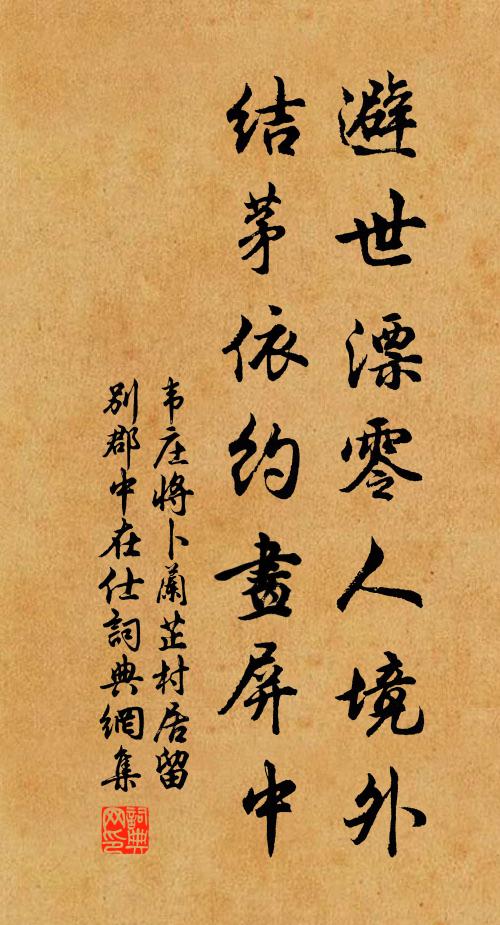 避世漂零人境外
结茅依约畫屏中
韦庄將卜蘭芷村居留
别郡中在仕詞典網集
詞典
网印